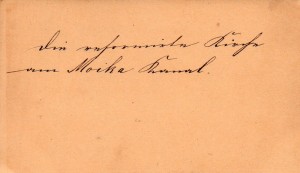 Die reformirte Kirche
am Moika Kanal.